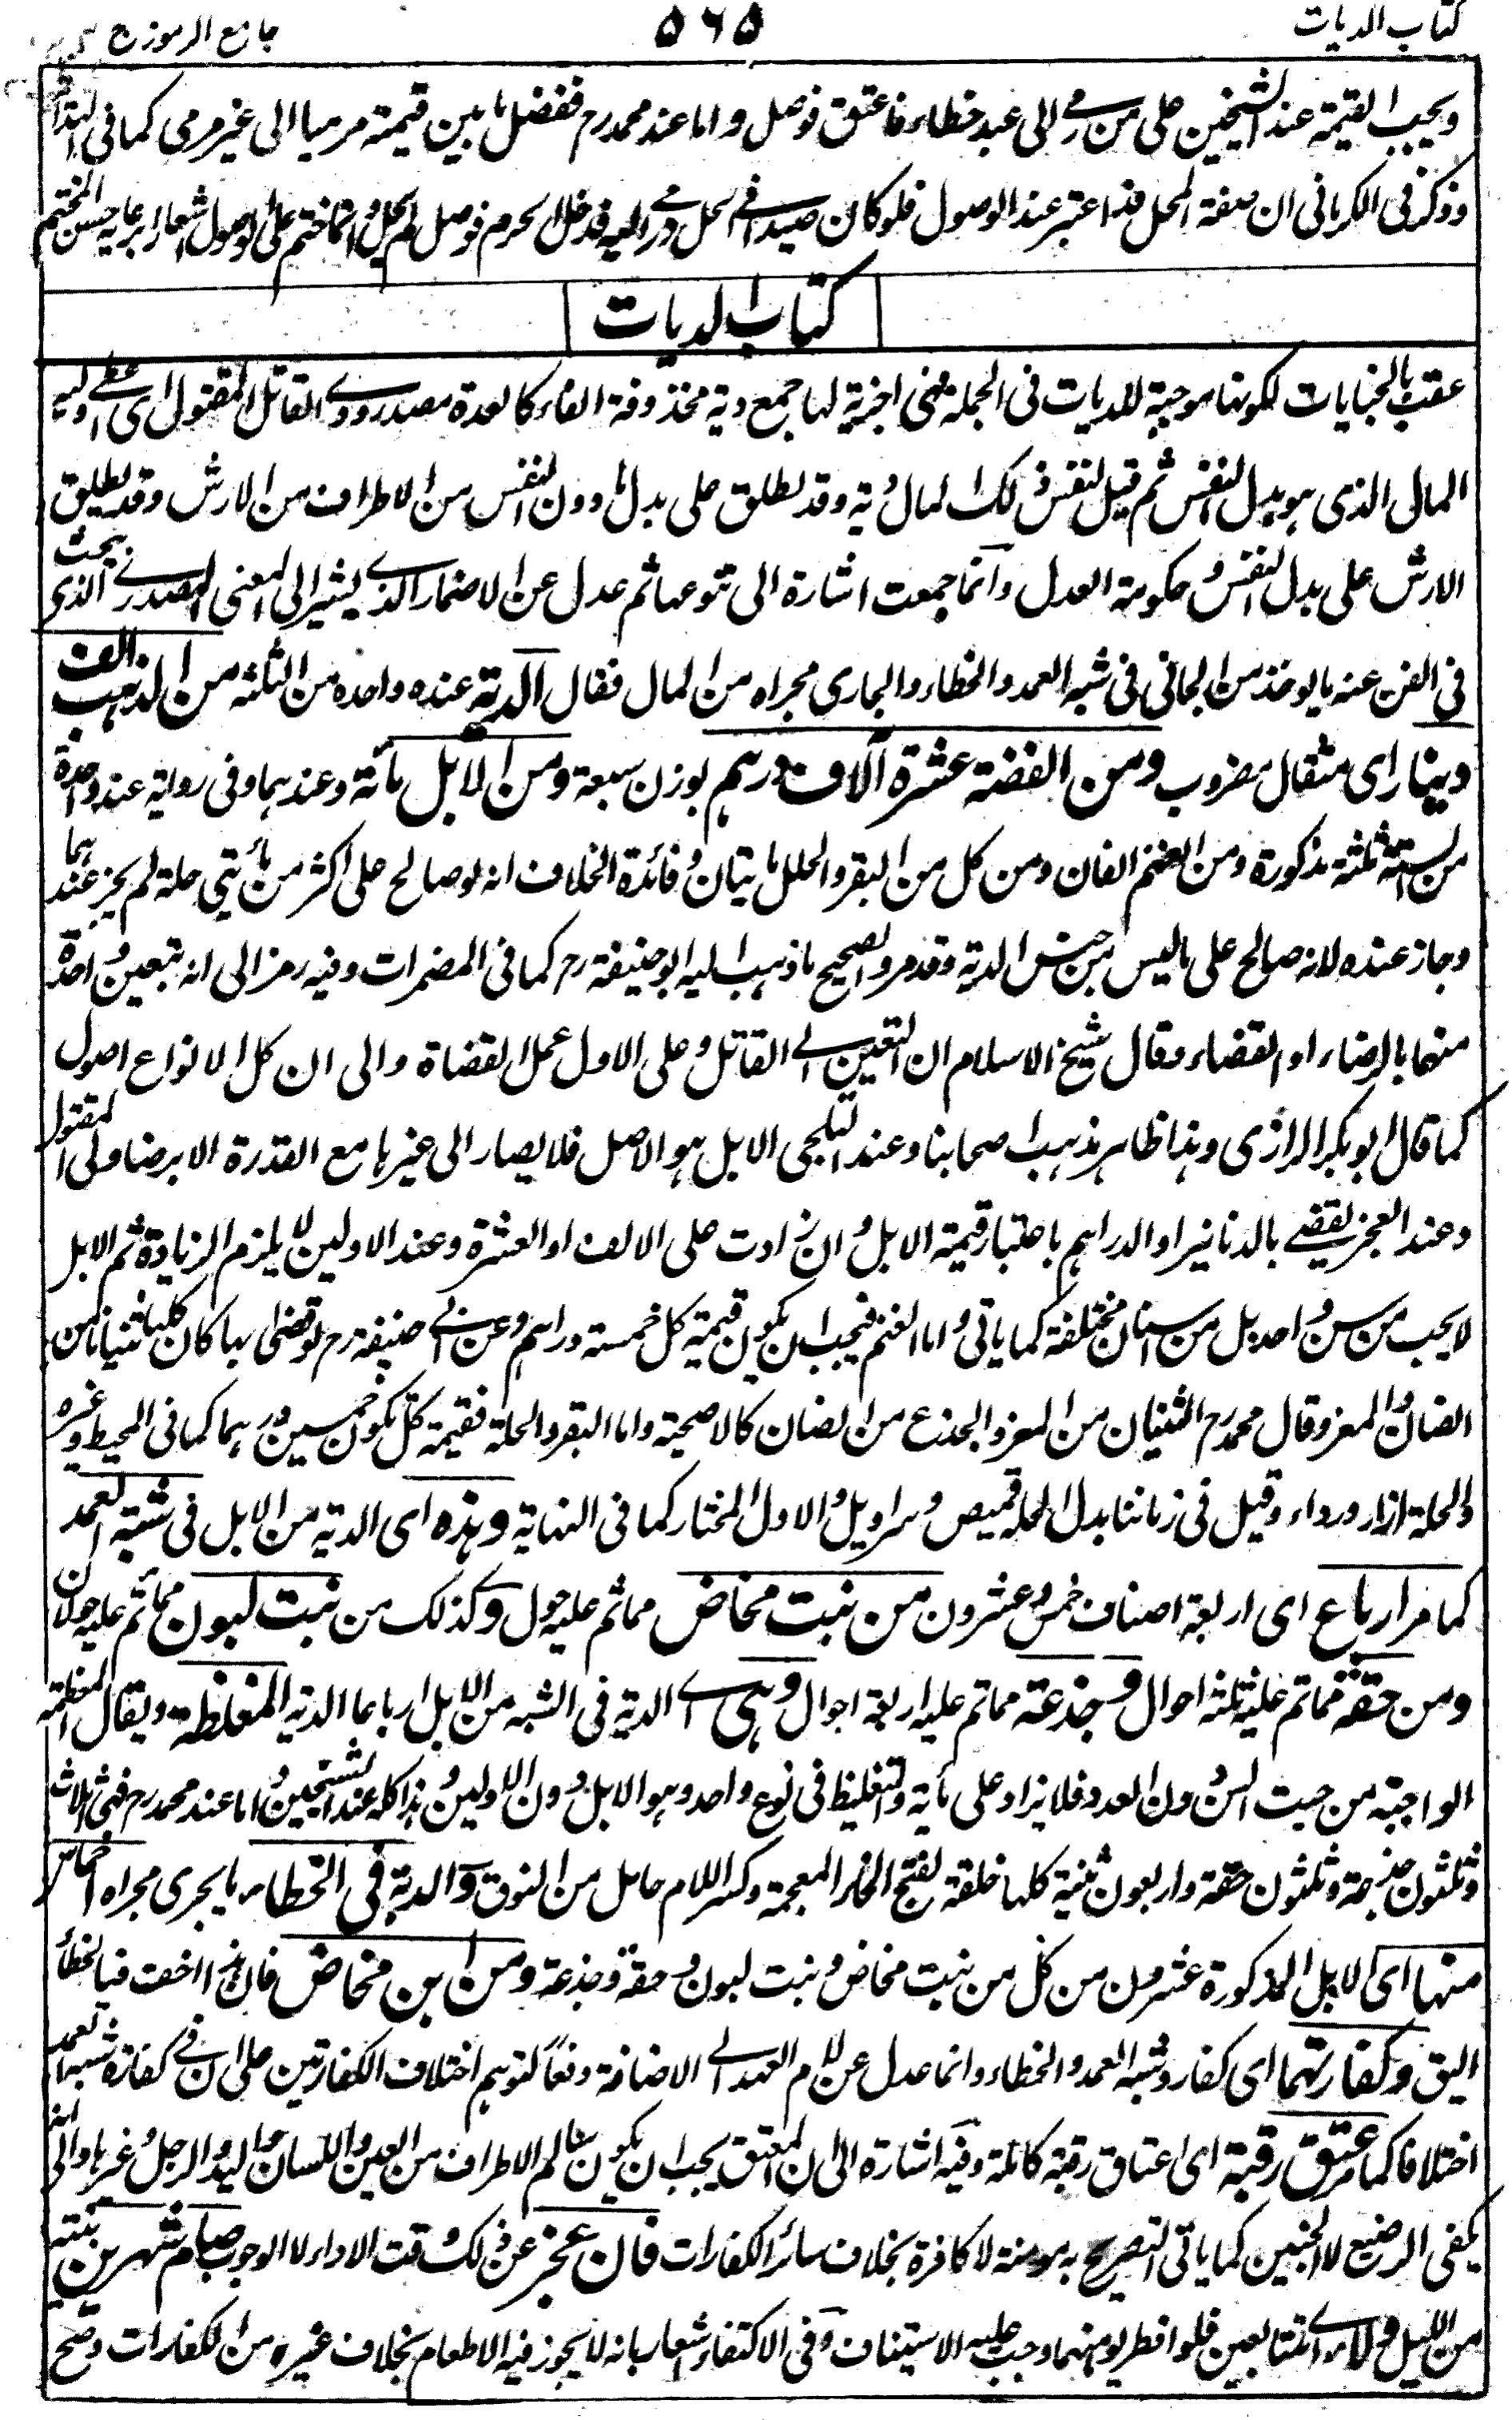 كتاب الديات ٥٦٥ جامع الرموز ج
ويجب القيمة عند الشيخين على من رمى الى عبد خطاء فاعتق فوصل واما عند محمد رح ففضل ما بين قيمته مرميا الى غير مرمى كما فى الهداية
وذكر فى الكرمانى ان صفة المحل قد اعتبر عند الوصول فلو كان صيد فى الحل ورمى اليه فدخل الحرم فوصل لم يحل وانما ختم على الوصول اشعارا برعاية حسن المختتم
كتاب الديات
عقب بالجنايات لكونها موجبة للديات فى الجملة فهى اجزية لها جمع دية محذوفة الفاء كالعدة مصدر ودى القاتل المقتول اى اعطى وليه
المال الذى هو بدل النفس ثم قيل لنفس ذلك المال دية وقد يطلق على بدل ما دون النفس من الاطراف من الارش وقد يطلق
الارش على بدل النفس وحكومة العدل وانما جمعت اشارة الى تنوعها ثم عدل عن الاضمار الذى يشير الى المعنى المصدرى الذى يبحث
فى الفن عنه ما يوخذ من الجانى فى شبه العمد والخطاء والجارى مجراه من المال فقال الدية عنده واحدة من الثلثة من الذهب الف
دينار اى مثقال مضروب ومن الفضة عشرة آلاف درهم بوزن سبعة ومن الابل مائة وعندهما وفى رواية عنده واحدة
من الستة ثلثة مذكورة ومن الغنم الفان ومن كل من البقر والحلل مايتان وفائدة الخلاف انه لو صالح على اكثر من مائتى حلة لم يجز عندهما
وجاز عنده لانه صالح على ما ليس من جنس الدية وقد مر والصحيح ما ذهب اليه ابو حنيفة رح كما فى المضمرات وفيه رمز الى انه يتعين واحدة
منها بالرضاء او القضاء وقال شيخ الاسلام ان التعيين الى القاتل وعلى الاول عمل القضاة والى ان كل الانواع اصول
كما قال ابو بكر الرازى وهذا ظاهر مذهب اصحابنا وعند الثلجى الابل هو الاصل فلا يصار الى غيرها مع القدرة الا برضا ولى المقتول
وعند العجز يقضى بالدنانير او الدراهم باعتبار قيمة الابل وان زادت على الالف او العشرة وعند الاولين لا يلزم الزيادة ثم الابل
لا يجب من سن واحد بل من سنان مختلفة كما ياتى واما الغنم فيجب ان يكون قيمة كل خمسة دراهم وعن ابى حنيفة رح لو قضى بها كان كلها ثنيا من
الضان والمعز وقال محمد رح الثنيان من المعز والجذع من الضان كالاضحية واما البقر والحلة فقيمة كل تكون خمسين درهما كما فى المحيط وغيره
والحلة ازار ورداء وقيل فى زماننا بدل الحلة قميص وسراويل والاول المختار كما فى النهاية وهذه اى الدية من الابل فى شبه العمد
كما مر ارباع اى اربعة اصناف خمس وعشرون من بنت مخاض مما تم عليه حول وكذلك من بنت لبون مما تم عليه حولان
ومن حقة مما تم عليه ثلثة احوال وجذعة مما تم عليه اربعة احوال وهى اى الدية فى الشبه من الابل ارباعا الدية المغلظة ويقال المغلظة
الواجبة من حيث السن دون العدد فلا يزاد على مأية والتغليظ فى نوع واحد وهو الابل دون الاولين وهذا كله عند الشيخين واما عند محمد رح فهى اثلاث
ثلثون جذعة وثلثون حقة واربعون ثنية كلها خلفة بفتح الخاء المعجمة وكسر اللام حامل من النوق والدية فى الخطاء ما يجرى مجراه اخماس
منها اى الابل المذكورة عشرون من كل من بنت مخاض وبنت لبون وحقة وجذعة ومن ابن مخاض فان هذا اخف فبالخطأ
اليق وكفارتهما اى كفارة شبه العمد والخطاء وانما عدل عن لام العهد الى الاضافة دفعا لتوهم اختلاف الكفارتين على ان فى كفارة شبه العمد
اختلافا كما مر عتق رقبة اى اعتاق رقبة كاملة وفيه اشارة الى ان المعتق يجب ان يكون سالم الاطراف من العين واللسان واليد والرجل وغيرها والى انه
يكفى الرضيع لا الجنين كما ياتى التصريح به مومنة لا كافرة بخلاف سائر الكفارات فان عجز عن ذلك وقت الاداء لا الوجوب صيام شهرين بنية
من الليل ولاء اى متتابعين فلو افطر يوما منهما وجب عليه الاستيناف وفى الاكتفاء اشعار بانه لا يجوز فيه الاطعام بخلاف غيره من الكفارات وصح